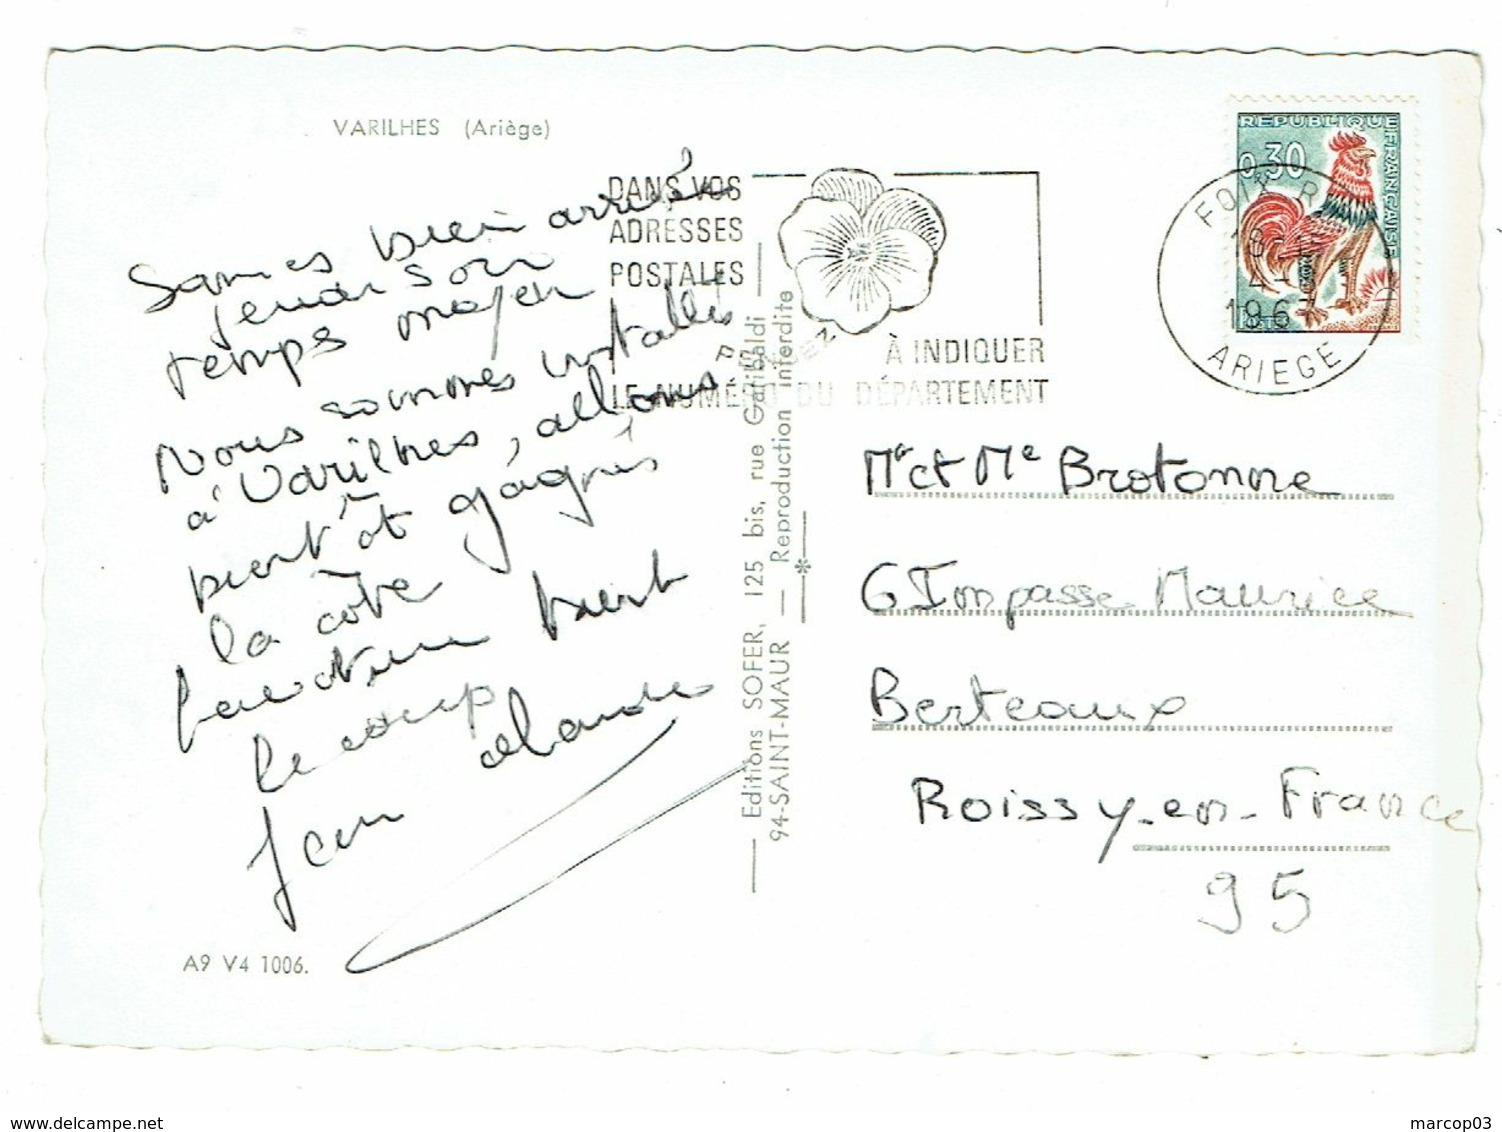 VARILHES (Ariège)
Sommes bien arrivés
jeudi soir
temps moyen
Nous sommes installés
à Varilhes, allons
bientôt gagner
la côte
bientôt
le coup
Jean Claude
A9 V4 1006.
Editions SOFER, 125 bis, rue Garibaldi
94-SAINT-MAUR — Reproduction interdite
DANS VOS
ADRESSES
POSTALES
PENSEZ
À INDIQUER
LE NUMÉRO DU DÉPARTEMENT
REPUBLIQUE FRANÇAISE
0,30
POSTES
FOIX R.P.
18
1967
ARIEGE
Mr et Me Brotonne
6 Impasse Maurice
Berteaux
Roissy-en-France
95
marcop03